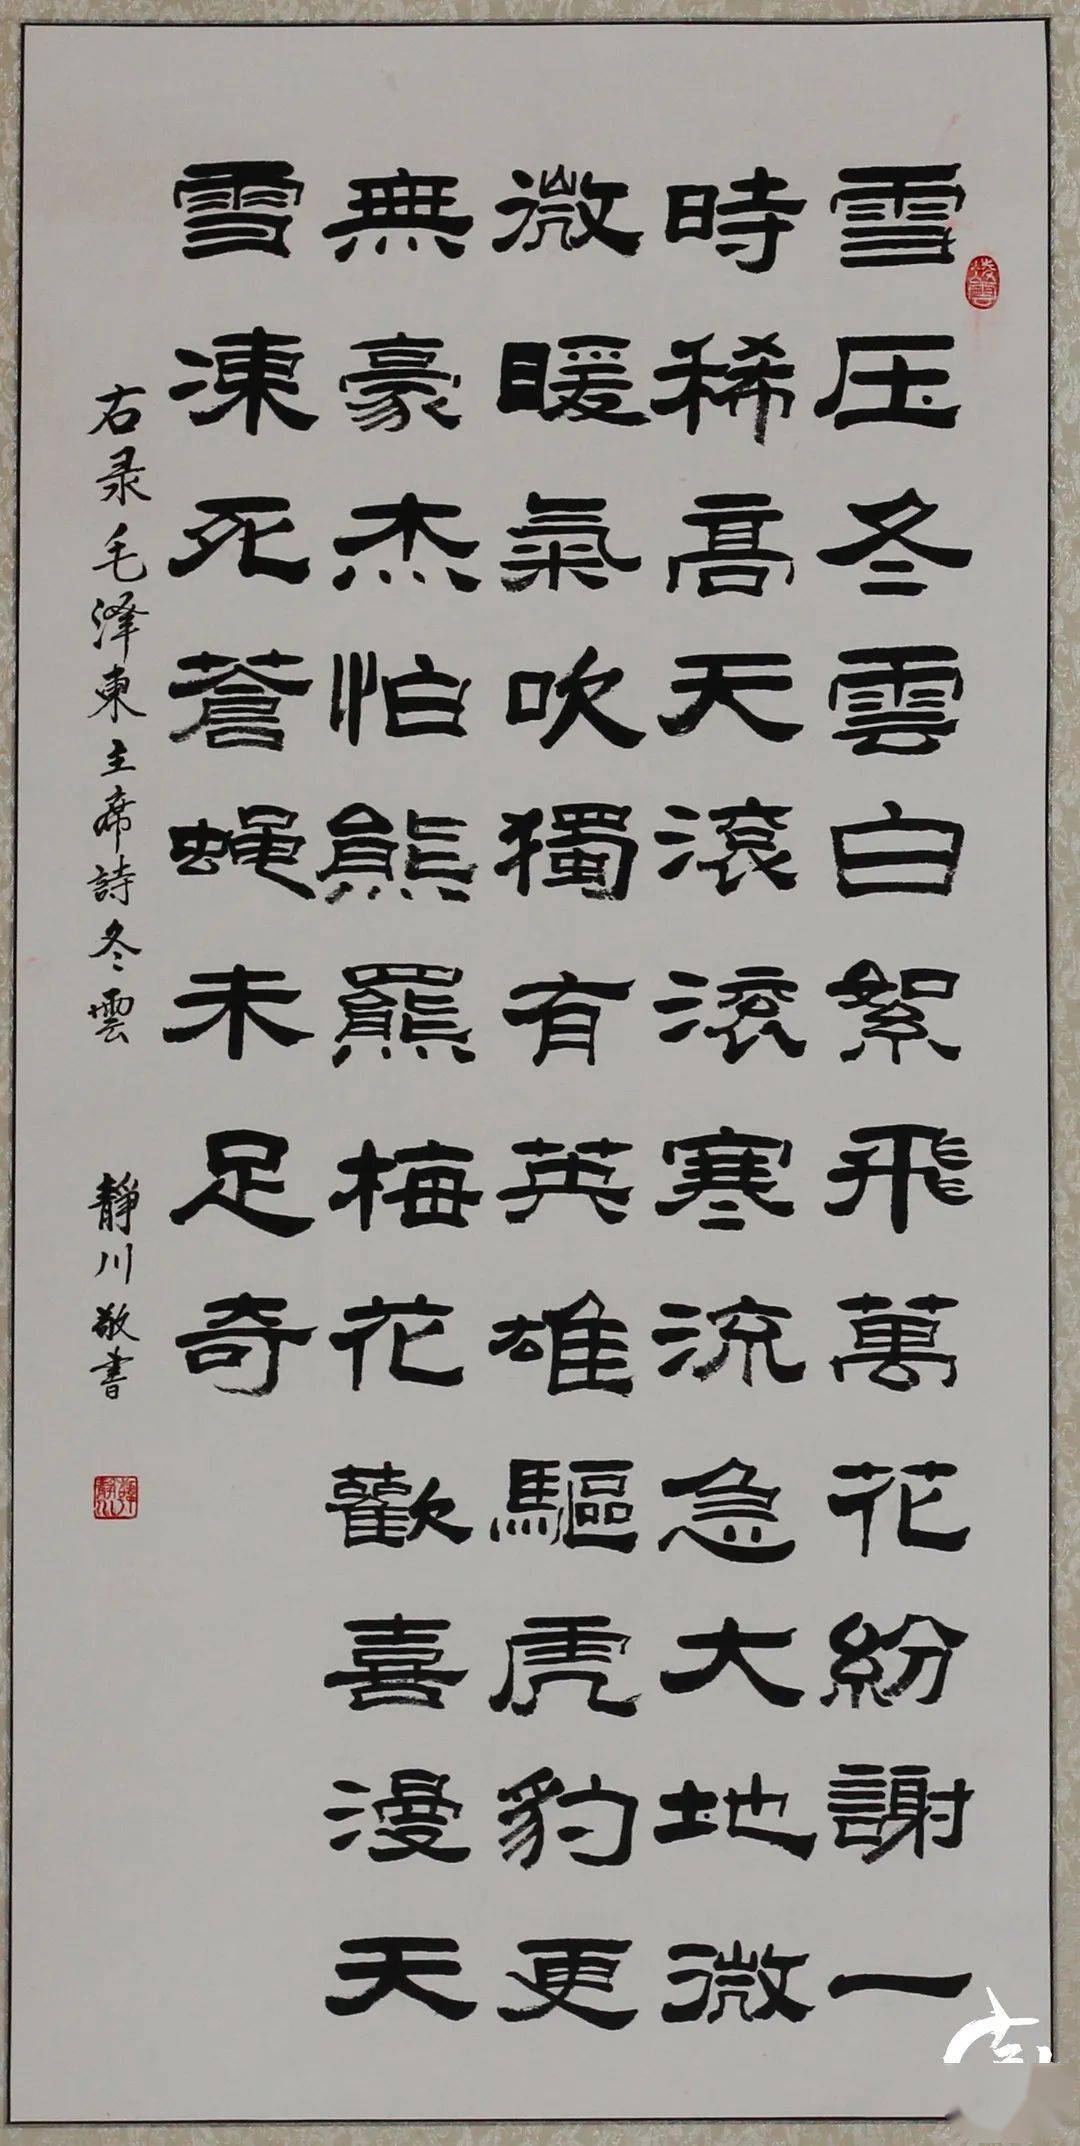 雪压冬雲白絮飛萬花紛謝一
時稀高天滾滾寒流急大地微
微暖氣吹獨有英雄驅虎豹更
無豪杰怕熊羆梅花歡喜漫天
雪凍死蒼蝇未足奇
右录毛泽東主席詩冬雲
靜川敬書